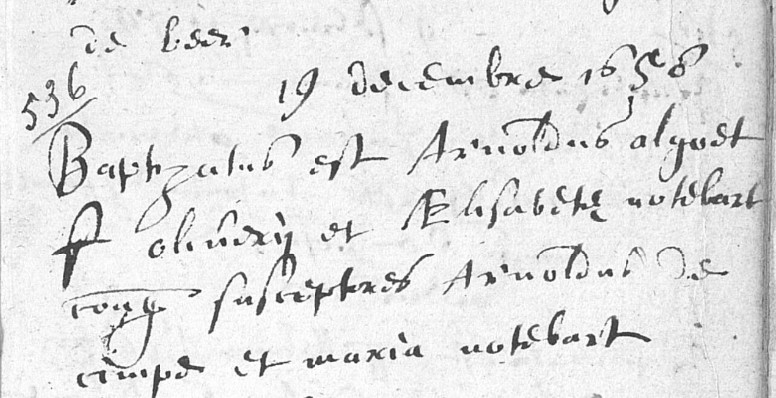 de beer
536
19 decembre 1656
Baptizatus est Arnoldus algoet
f oliverij et Elisabetę notebart
coniug susceptores Arnoldus de
cimpe et maria notebart